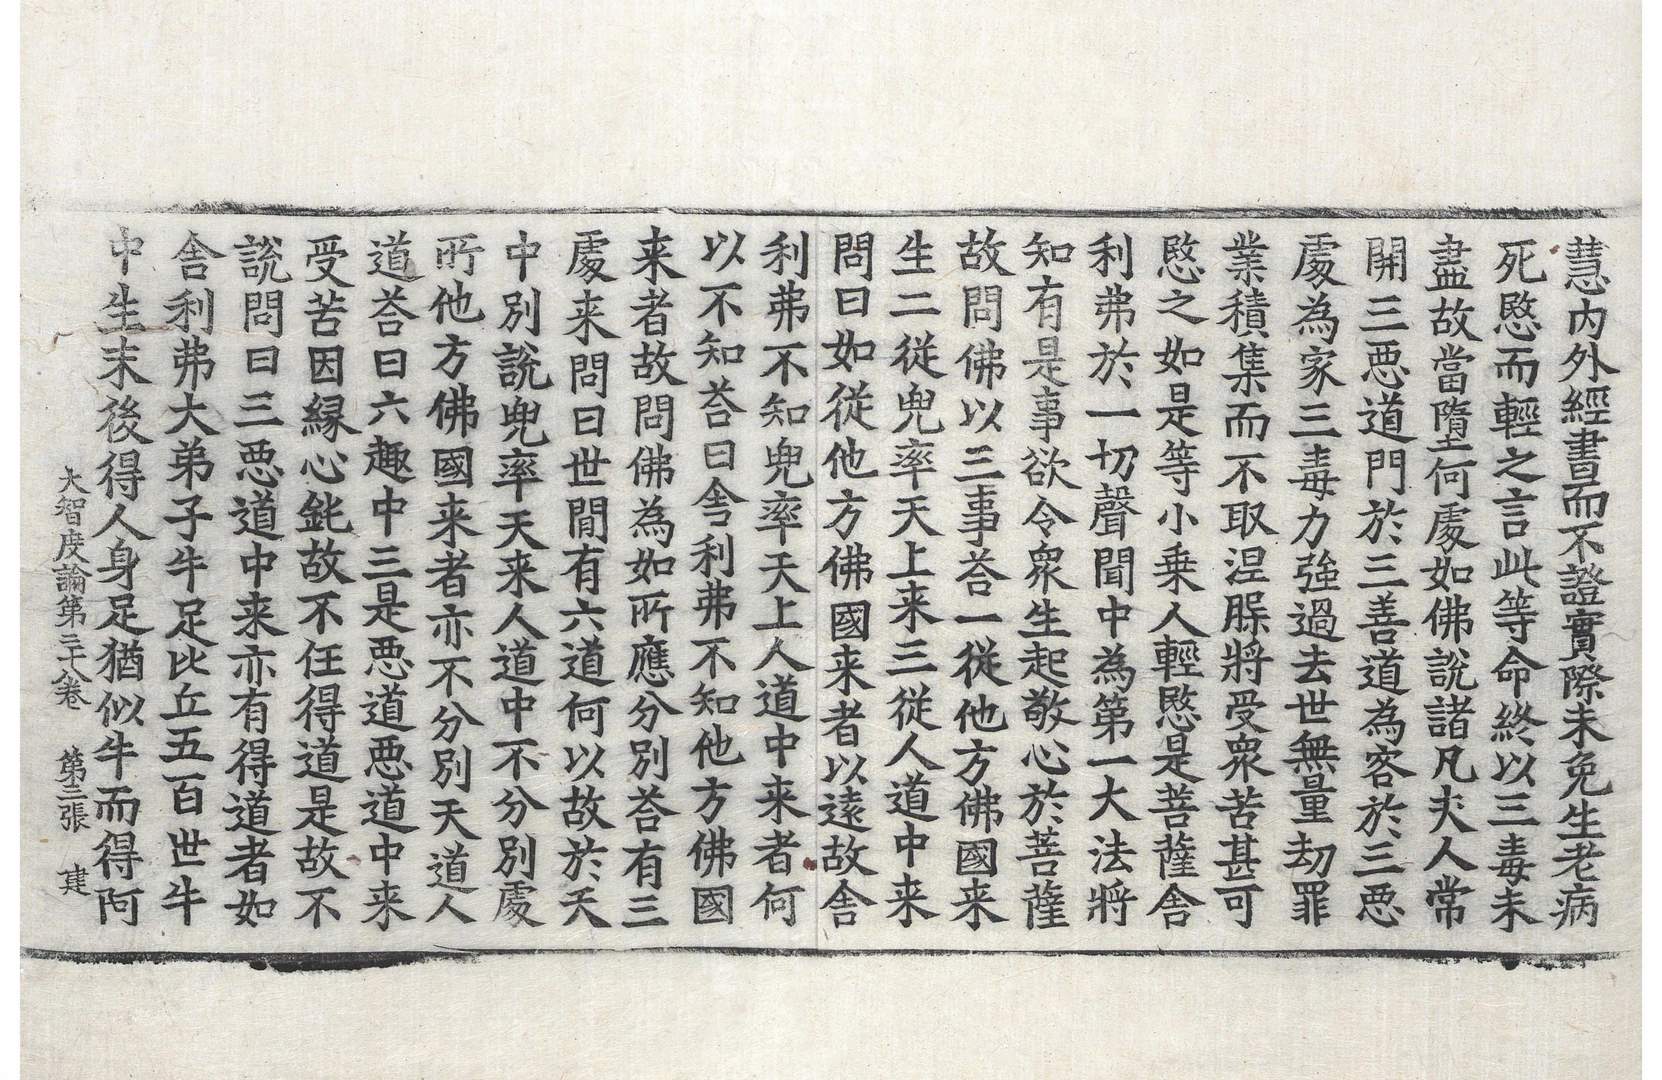 慧内外經書而不證實際未免生老病
死愍而輕之言此等命終以三毒未
盡故當墮何處如佛說諸凡夫人常
開三惡道門於三善道為客於三惡
處為家三毒力強過去世無量劫罪
業積集而不取涅槃將受眾苦甚可
愍之如是等小乗人輕愍是菩薩舎
利弗於一切聲聞中為第一大法將
知有是事欲令眾生起敬心於菩薩
故問佛以三事荅一從他方佛國来
生二從兜率天上来三從人道中来
問曰如從他方佛國来者以遠故舎
利弗不知兜率天上人道中来者何
以不知荅曰舎利弗不知他方佛國
来者故問佛為如所應分別荅有三
處来問曰世間有六道何以故於天
中別說兜率天来人道中不分別處
所他方佛國来者亦不分別天道人
道荅曰六趣中三是惡道惡道中来
受苦因縁心鈍故不任得道是故不
說問曰三惡道中来亦有得道者如
舎利弗大弟子牛足比丘五百世牛
中生末後得人身足猶似牛而得阿
大智度論第三十八卷　第三張　建